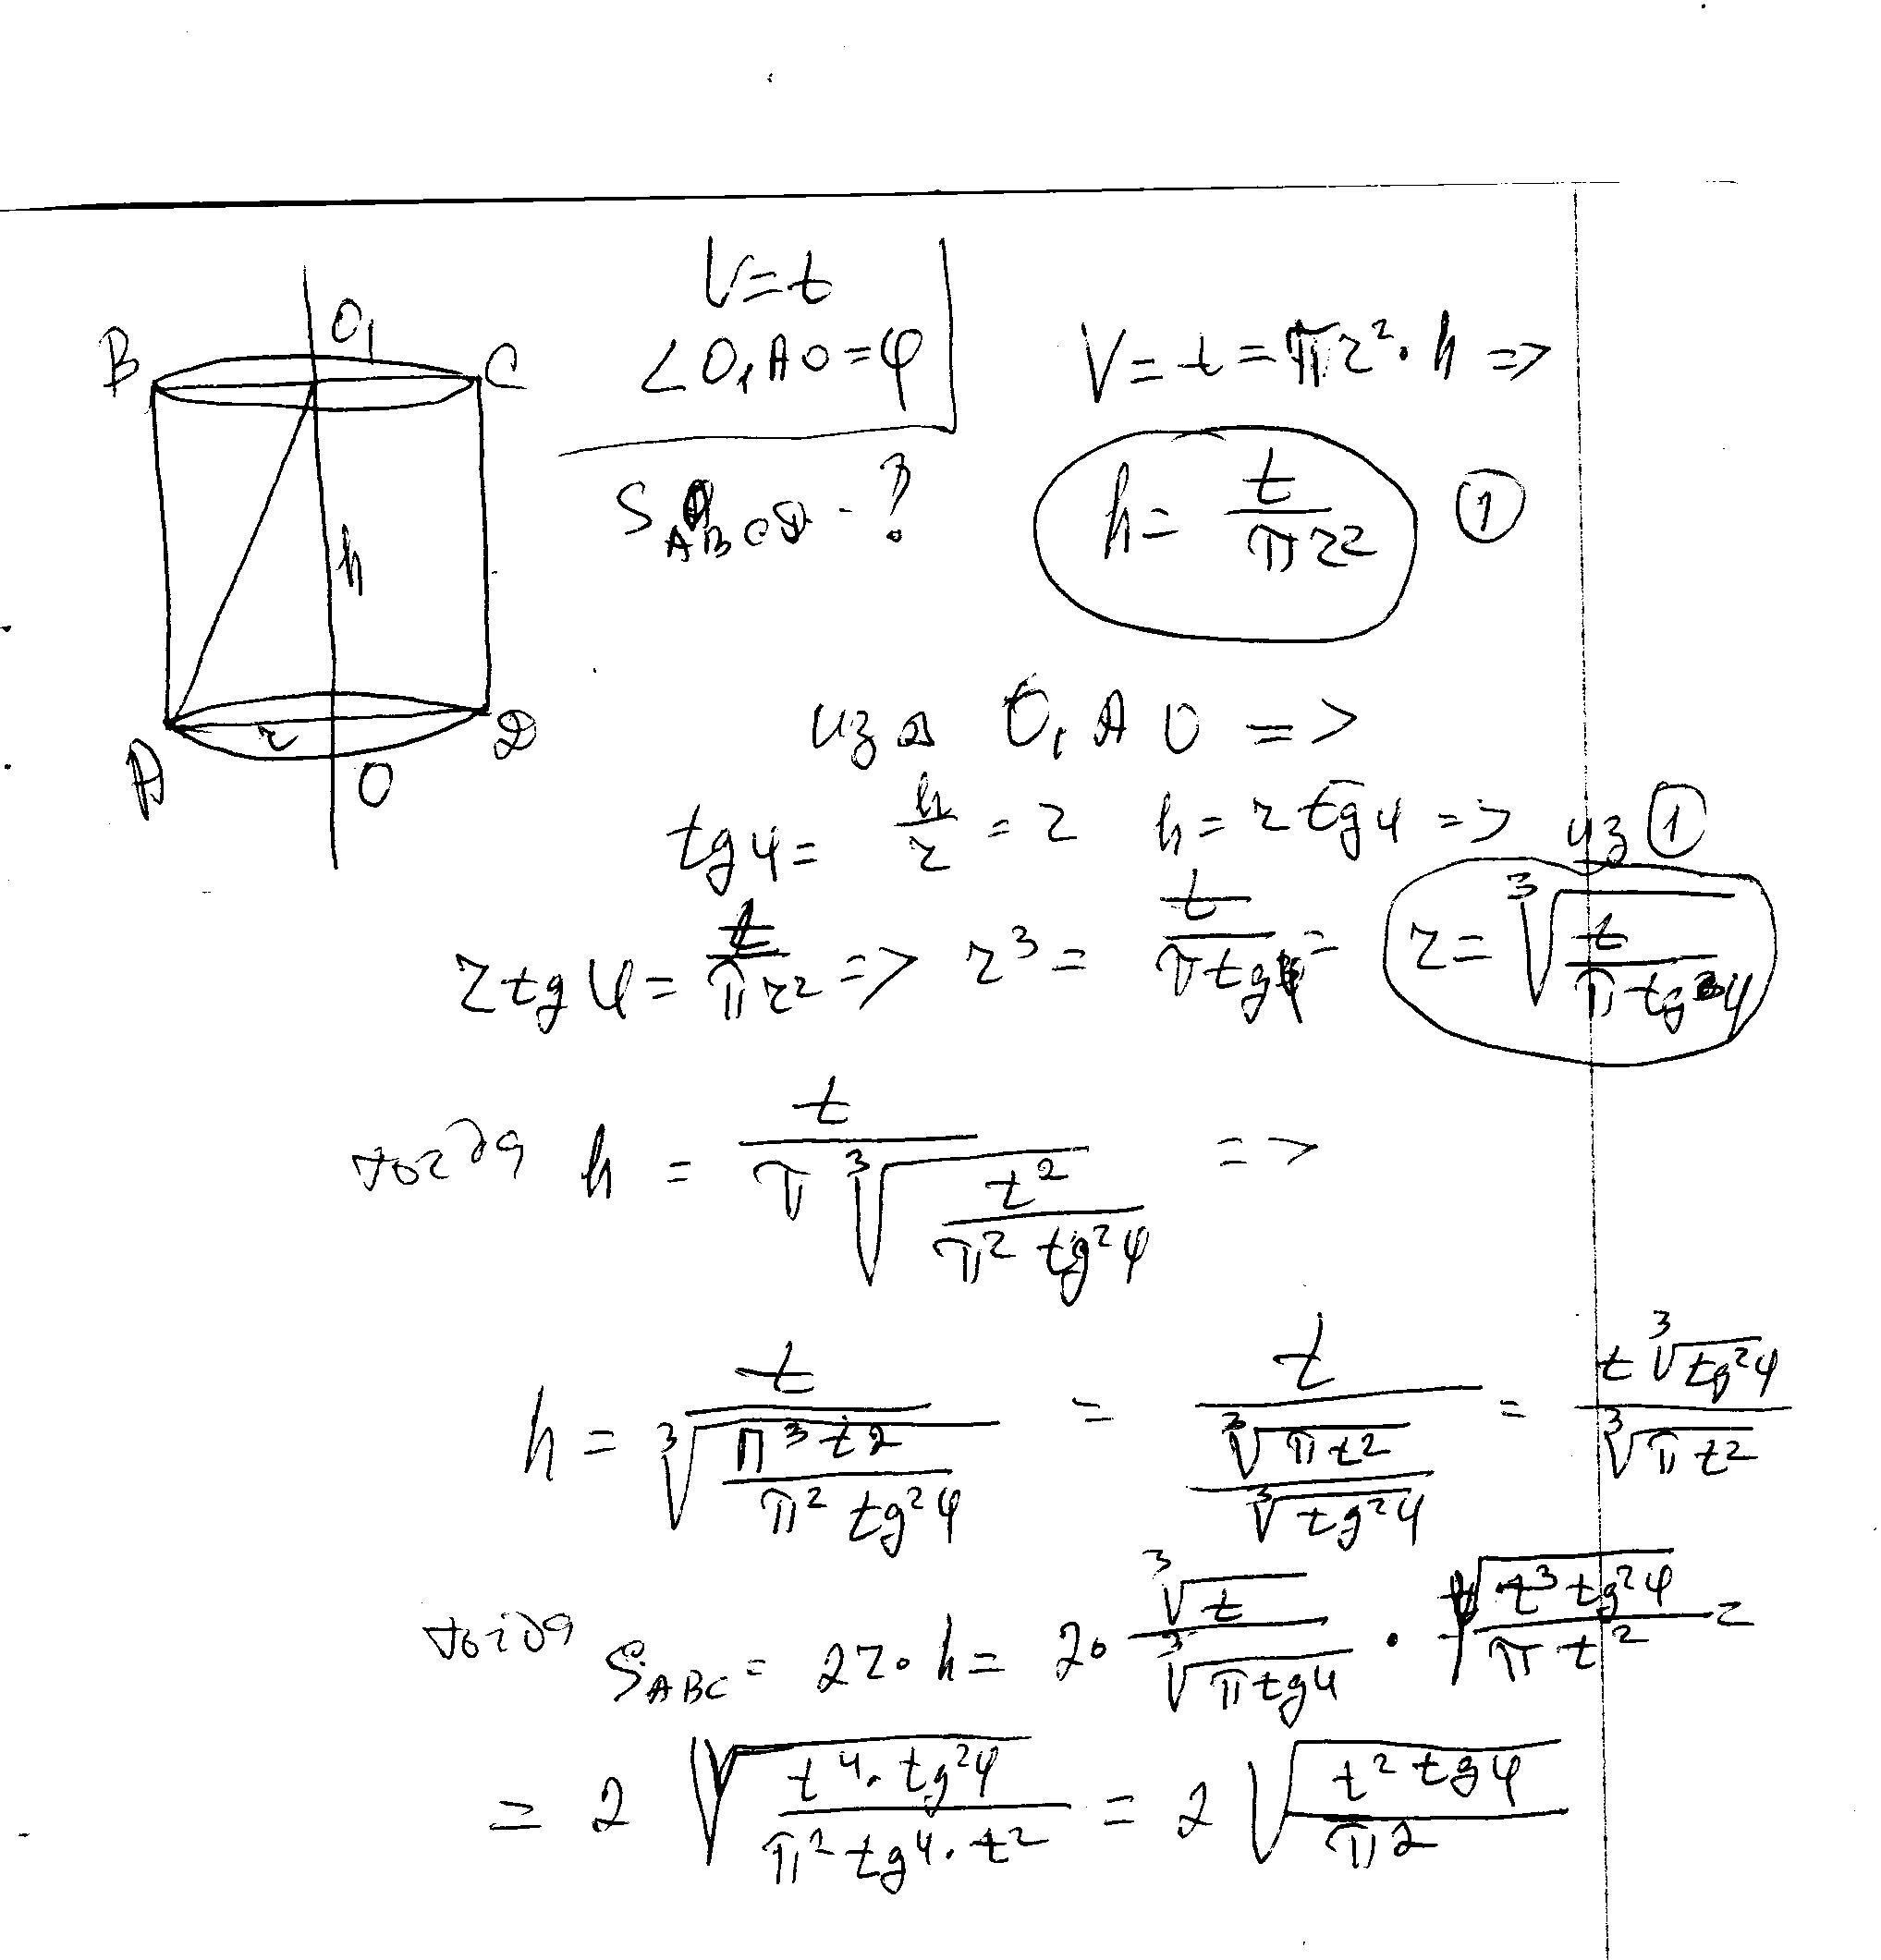 V=t
∠O₁AO=φ
S ABCD - ?
B O₁ C
h
A r O D
V = t = πr²·h =>
h = t/(πr²) ①
из △ O₁AO =>
tgφ = h/r => h = r tgφ => из ①
r tgφ = t/(πr²) => r³ = t/(π tgφ) = r = ∛(t/(π tgφ))
тогда h = t/(π ∛(t²/(π² tg²φ))) =>
h = t/∛(π³t²/(π² tg²φ)) = t/(∛(πt²)/∛(tg²φ)) = t∛(tg²φ)/∛(πt²)
тогда S ABC = 2r·h = 2·∛t/∛(π tgφ) · √(t³ tg²φ/(π t²)) =
= 2 √(t⁴·tg²φ/(π² tgφ·t²)) = 2 √(t² tgφ/π²)